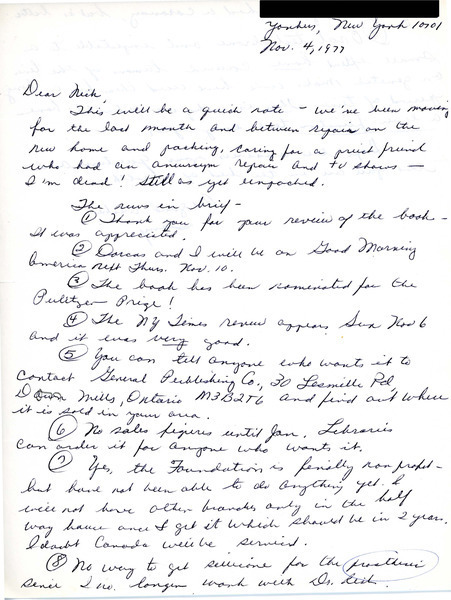 Yonkers, New York 10701
Nov. 4, 1977
Dear Rick,
This will be a quick note - we've been moving
for the last month and between repair on the
new home and packing, caring for a priest friend
who had an aneurysm repair and TV shows —
I'm dead! Still as yet unpacked.
The news in brief -
① Thank you for your review of the book -
It was appreciated.
② Dorcas and I will be on Good Morning
America next Thurs. Nov. 10.
③ The book has been nominated for the
Pulitzer Prize!
④ The NY Times review appears Sun Nov 6
and it was very good.
⑤ You can tell anyone who wants it to
contact General Publishing Co., 30 Lesmill Rd,
Don Mills, Ontario M3B2T6 and find out where
it is sold in your area.
⑥ No sales figures until Jan. Libraries
can order it for anyone who wants it.
⑦ Yes, the Foundation is finally non profit -
but have not been able to do anything yet. I
will not have other branches only in the half
way house once I get it which should be in 2 years.
I doubt Canada will be serviced.
⑧ No way to get silicone for the prosthesis
since I no longer work with Dr.